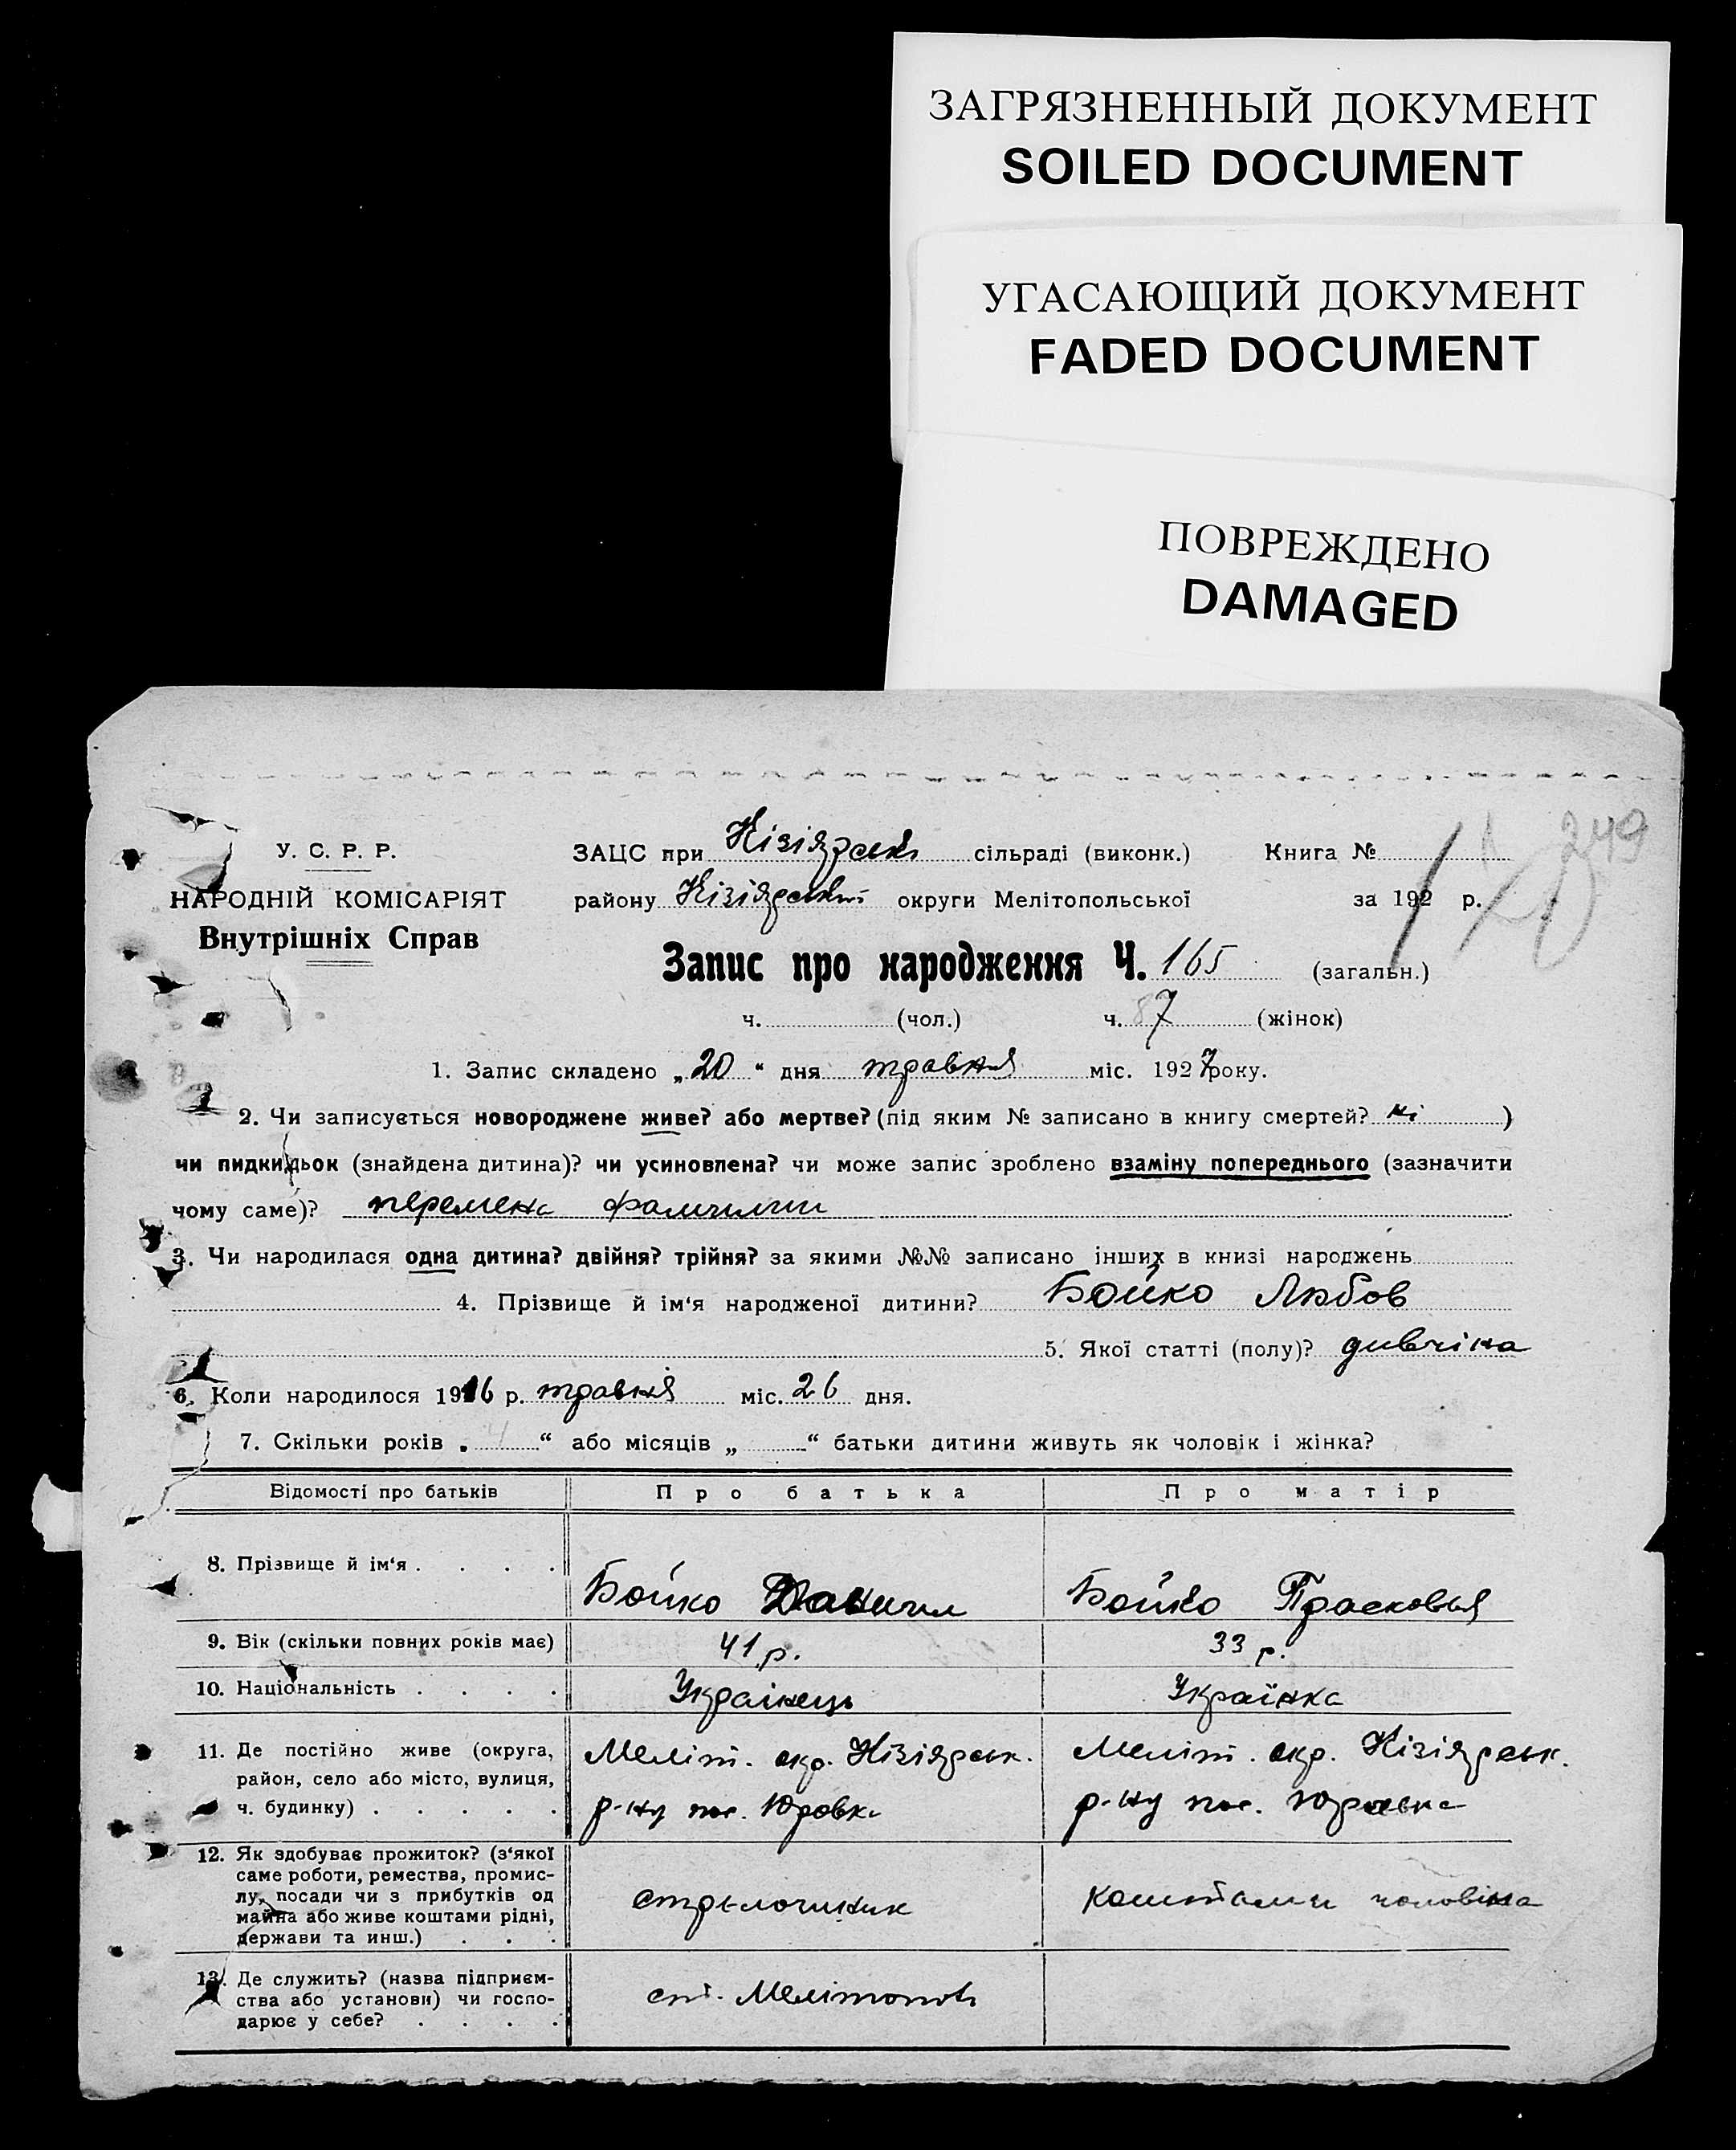 ЗАГРЯЗНЕННЫЙ ДОКУМЕНТ
SOILED DOCUMENT
УГАСАЮЩИЙ ДОКУМЕНТ
FADED DOCUMENT
ПОВРЕЖДЕНО
DAMAGED
249
У. С. Р. Р.
НАРОДНІЙ КОМІСАРІЯТ
Внутрішніх Справ
ЗАЦС при Кізіярські сільраді (виконк.) Книга №
району Кізіярський округи Мелітопольської за 192 р.
Запис про народження Ч. 165 (загальн.)
ч. (чол.) ч. 87 (жінок)
1. Запис складено „20“ дня травня міс. 1927 року.
2. Чи записується новороджене живе? або мертве? (під яким № записано в книгу смертей? ні )
чи пидкидьок (знайдена дитина)? чи усиновлена? чи може запис зроблено взаміну попереднього (зазначити
чому саме)? перемена фамилии
3. Чи народилася одна дитина? двійня? трійня? за якими №№ записано інших в книзі народжень
4. Прізвище й ім'я народженої дитини? Бойко Любов
5. Якої статті (полу)? дивчіна
6. Коли народилося 1916 р. травня міс. 26 дня.
7. Скільки років „ “ або місяців „ “ батьки дитини живуть як чоловік і жінка?
Відомості про батьків Про батька Про матір
8. Прізвище й ім'я . . . . Бойко Данило Бойко Прасковья
9. Вік (скільки повних років має) 41 р. 33 р.
10. Національність . . . . Українець Українка
11. Де постійно живе (округа, район, село або місто, вулиця, ч. будинку) . . . . .
Меліт. окр. Кізіярськ.
р-ну пос. Юровка
Меліт. окр. Кізіярськ.
р-ну пос. Юровка
12. Як здобуває прожиток? (з'якої
саме роботи, ремества, промис-
лу, посади чи з прибутків од
майна або живе коштами рідні,
держави та инш.) . . .
стрелочник
коштами чоловіка
13. Де служить? (назва підприєм-
ства або установи) чи госпо-
дарює у себе? . . . .
ст. Мелітополь